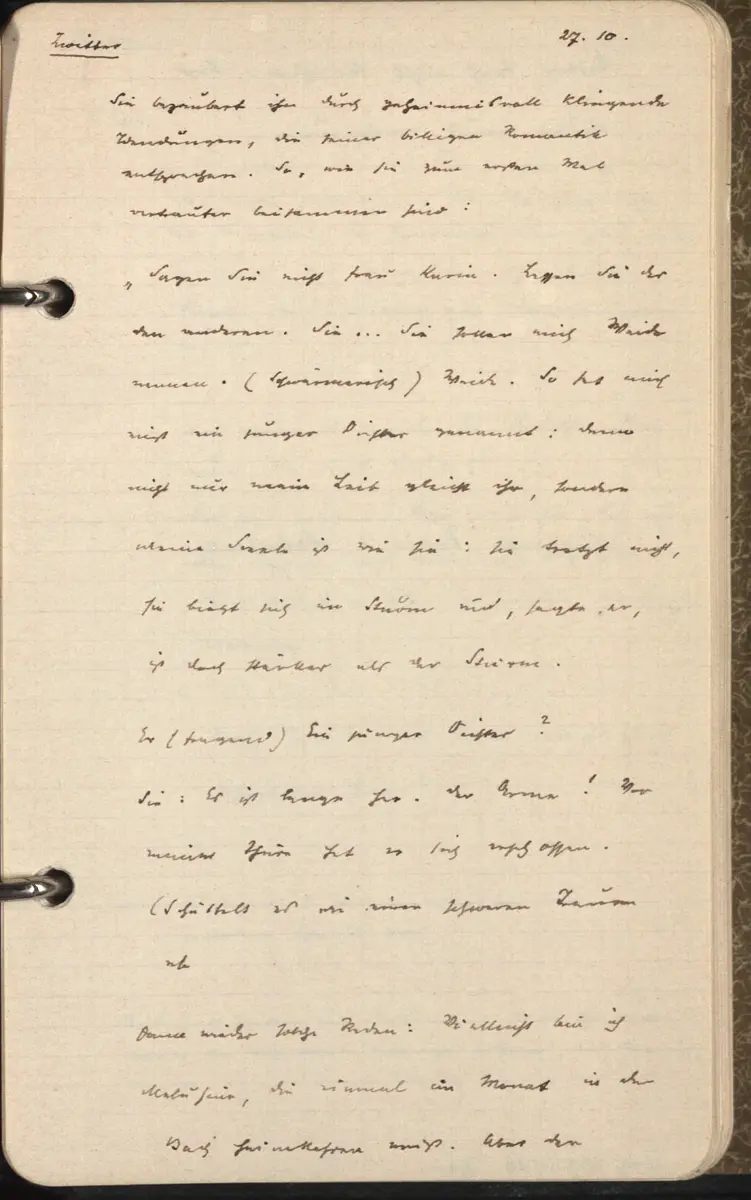 Zwitter 27. 10.
Sie bezaubert ihn durch geheimnisvoll klingende
Wendungen, die seiner billigen Romantik
entsprechen. So, wie sie zum ersten Mal
vertrauter beisammen sind:
„Sagen Sie nicht Frau Karin. Lassen Sie das
den anderen. Sie... Sie sollen mich Weide
nennen. (Schwärmerisch) Weide. So hat mich
einst ein junger Dichter genannt: denn
nicht nur mein Leib gleicht ihr, sondern
meine Seele ist wie sie: sie trotzt nicht,
sie biegt sich im Sturm und, sagte er,
ist doch stärker als der Sturm.
Er (fragend) Ein junger Dichter?
Sie: Es ist lange her. Der Arme! Vor
meiner Thür hat er sich erschossen.
(Schüttelt es wie einen schweren Traum
ab
Dann wieder solche Reden: Vielleicht bin ich
Melusine, die einmal im Monat in den
Bach heimkehren muß. Aber den